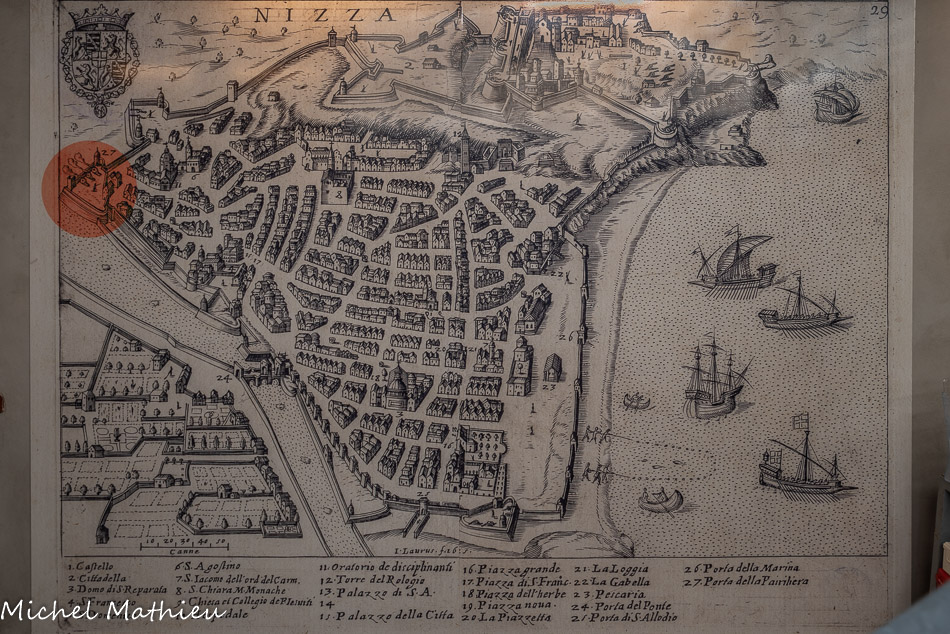 NIZZA
29
10 20 30 40 50
Canne
I. Laurus. f.
1. Castello
2. Cittadella
3. Domo di S. Reparata
6. S. Agostino
7. S. Iacomo dell'ord del Carm.
8. S. Chiara M. Monache
9. Chiesa et Collegio de Iesuiti
11. Oratorio de disciplinanti
12. Torre del Rologio
13. Palazzo di S.A.
14
15. Palazzo della Citta
16. Piazza grande
17. Piazza di S. Franc.
18 Piazza dell'herbe
19. Piazza noua.
20 La Piazzetta
21 La Loggia
22 La Gabella
23 Pescaria
24 Porta del Ponte
25 Porta di S. Allodio
26 Porta della Marina
27 Porta della Pairihera
Michel Mathieu